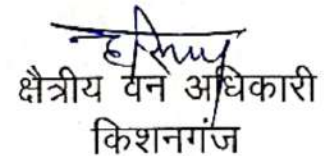 क्षैत्रीय वन अधिकारी
किशनगंज